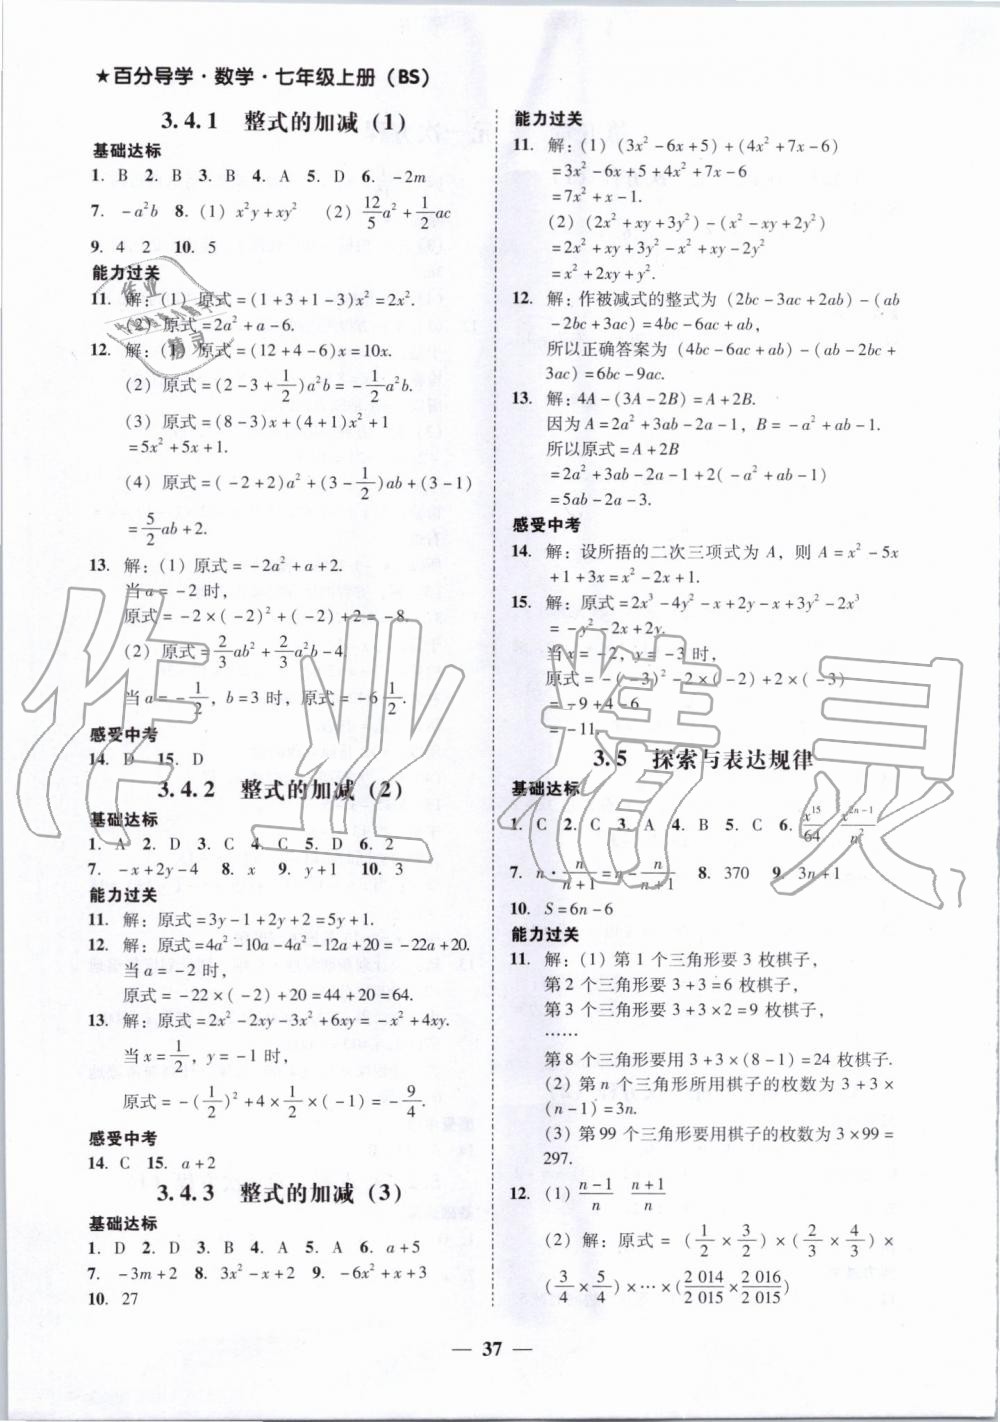 ★百分导学·数学·七年级上册（BS）
3.4.1 整式的加减（1）
基础达标
1. B 2. B 3. B 4. A 5. D 6. －2m
7. －a²b 8.（1）x²y＋xy² （2）12/5 a²＋1/2 ac
9. 4 2 10. 5
能力过关
11. 解：（1）原式＝(1＋3＋1－3)x²＝2x².
（2）原式＝2a²＋a－6.
12. 解：（1）原式＝(12＋4－6)x＝10x.
（2）原式＝(2－3＋1/2)a²b＝－1/2 a²b.
（3）原式＝(8－3)x＋(4＋1)x²＋1
＝5x²＋5x＋1.
（4）原式＝(－2＋2)a²＋(3－1/2)ab＋(3－1)
＝5/2 ab＋2.
13. 解：（1）原式＝－2a²＋a＋2.
当a＝－2时，
原式＝－2×(－2)²＋(－2)＋2＝－8.
（2）原式＝2/3 ab²＋2/3 a²b－4
当a＝－1/2，b＝3时，原式＝－6 1/2.
感受中考
14. D 15. D
3.4.2 整式的加减（2）
基础达标
1. A 2. D 3. C 4. C 5. D 6. 2
7. －x＋2y－4 8. x 9. y＋1 10. 3
能力过关
11. 解：原式＝3y－1＋2y＋2＝5y＋1.
12. 解：原式＝4a²－10a－4a²－12a＋20＝－22a＋20.
当a＝－2时，
原式＝－22×(－2)＋20＝44＋20＝64.
13. 解：原式＝2x²－2xy－3x²＋6xy＝－x²＋4xy.
当x＝1/2，y＝－1时，
原式＝－(1/2)²＋4×1/2×(－1)＝－9/4.
感受中考
14. C 15. a＋2
3.4.3 整式的加减（3）
基础达标
1. D 2. D 3. B 4. A 5. A 6. a＋5
7. －3m＋2 8. 3x²－x＋2 9. －6x²＋x＋3
10. 27
能力过关
11. 解：（1）(3x²－6x＋5)＋(4x²＋7x－6)
＝3x²－6x＋5＋4x²＋7x－6
＝7x²＋x－1.
（2）(2x²＋xy＋3y²)－(x²－xy＋2y²)
＝2x²＋xy＋3y²－x²＋xy－2y²
＝x²＋2xy＋y².
12. 解：作被减式的整式为(2bc－3ac＋2ab)－(ab
－2bc＋3ac)＝4bc－6ac＋ab，
所以正确答案为(4bc－6ac＋ab)－(ab－2bc＋
3ac)＝6bc－9ac.
13. 解：4A－(3A－2B)＝A＋2B.
因为A＝2a²＋3ab－2a－1，B＝－a²＋ab－1.
所以原式＝A＋2B
＝2a²＋3ab－2a－1＋2(－a²＋ab－1)
＝5ab－2a－3.
感受中考
14. 解：设所捂的二次三项式为A，则A＝x²－5x
＋1＋3x＝x²－2x＋1.
15. 解：原式＝2x³－4y²－x＋2y－x＋3y²－2x³
＝－y²－2x＋2y.
当x＝－2，y＝－3时，
原式＝－(－3)²－2×(－2)＋2×(－3)
＝－9＋4－6
＝－11.
3.5 探索与表达规律
基础达标
1. C 2. C 3. A 4. B 5. C 6. x¹⁵/64 x²ⁿ⁻¹/n²
7. n·n/(n＋1)＝n－n/(n＋1) 8. 370 9. 3n＋1
10. S＝6n－6
能力过关
11. 解：（1）第1个三角形要3枚棋子，
第2个三角形要3＋3＝6枚棋子，
第3个三角形要3＋3×2＝9枚棋子，
……
第8个三角形要用3＋3×(8－1)＝24枚棋子.
（2）第n个三角形所用棋子的枚数为3＋3×
(n－1)＝3n.
（3）第99个三角形要用棋子的枚数为3×99＝
297.
12.（1）(n－1)/n (n＋1)/n
（2）解：原式＝(1/2×3/2)×(2/3×4/3)×
(3/4×5/4)×…×(2 014/2 015×2 016/2 015)
— 37 —
作业精灵